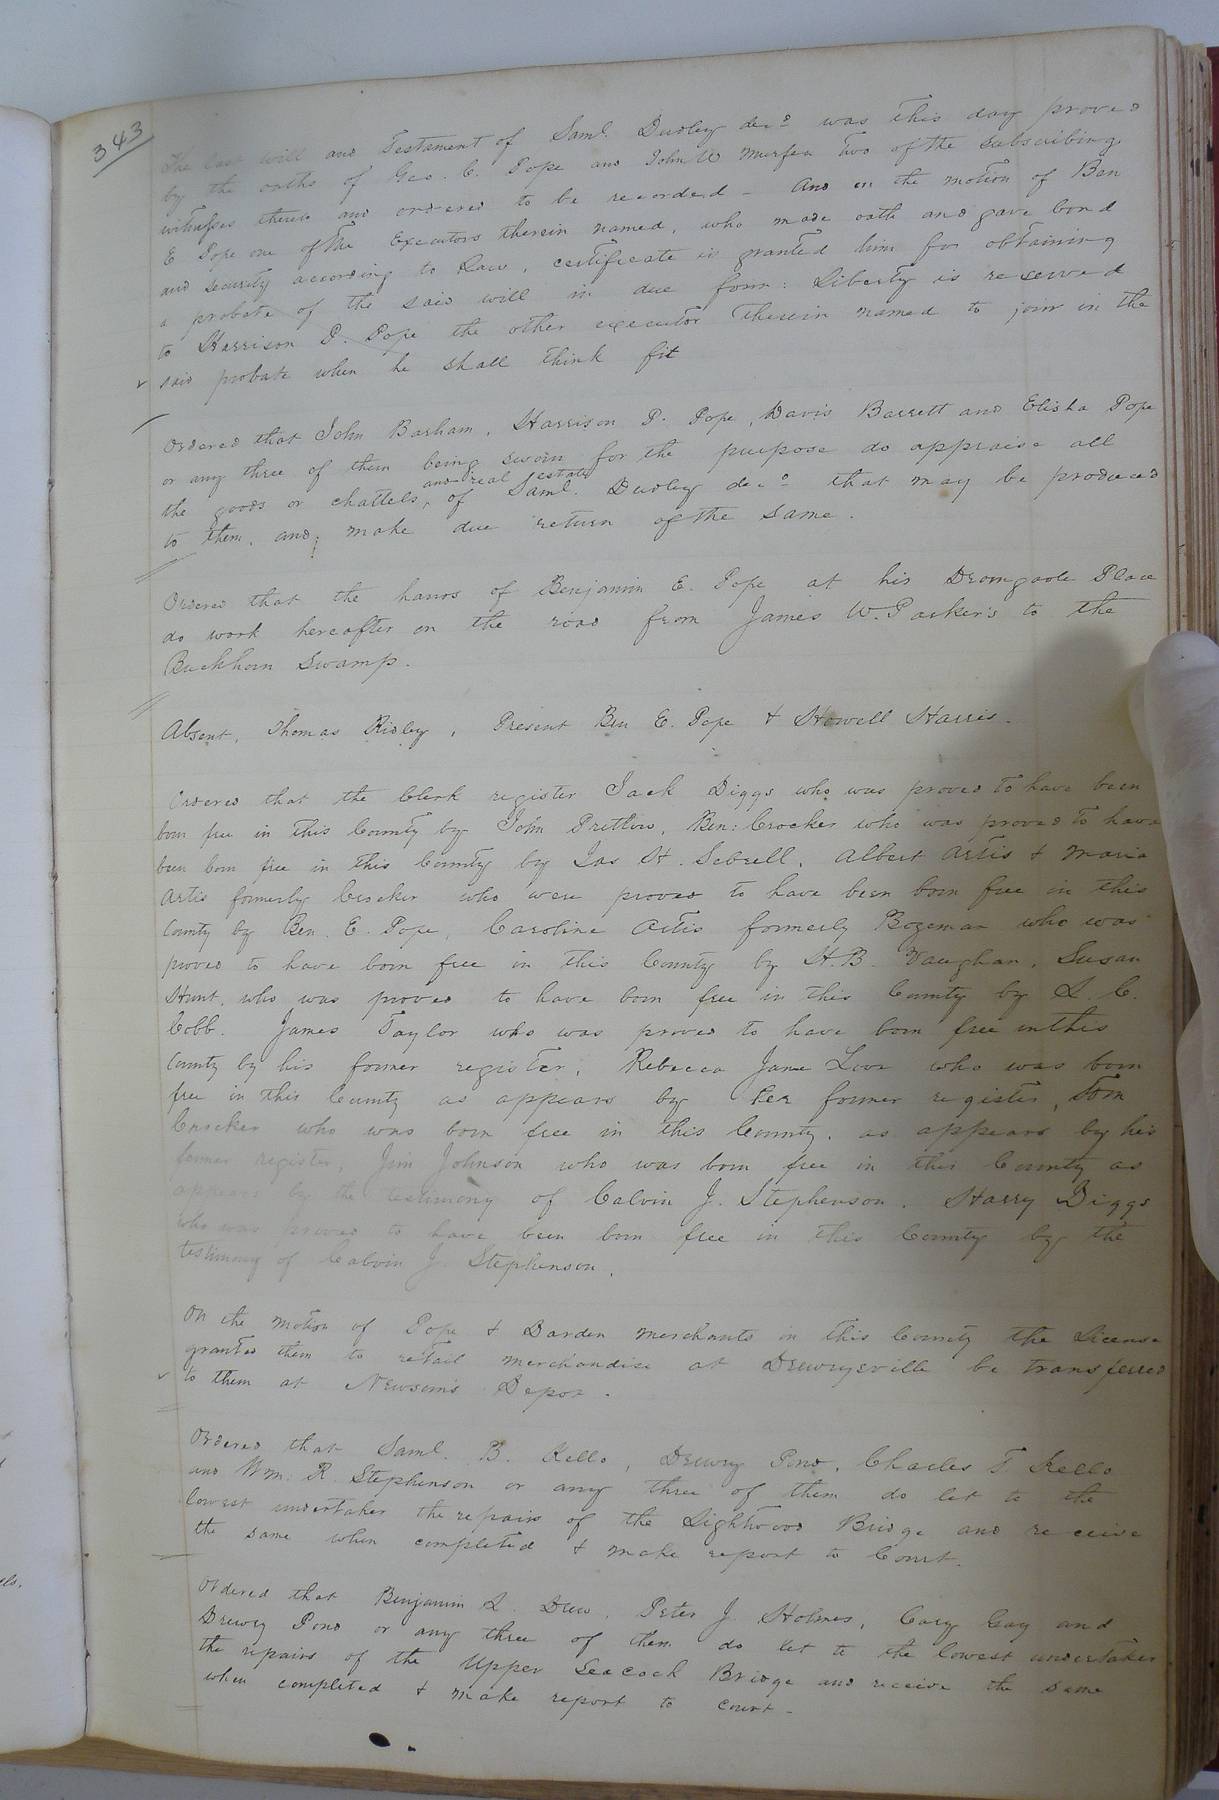 343
The last will and Testament of Saml. Dudley decd was this day proved
by the oaths of Geo. C. Pope and John W Murfee two of the subscribing
witnesses thereto and ordered to be recorded - And on the motion of Ben
E Pope one of the Executors therein named, who made oath and gave bond
and security according to Law, certificate is granted him for obtaining
a probate of the said will in due form: Liberty is reserved
to Harrison P. Pope the other executor therein named to join in the
said probate when he shall think fit
Ordered that John Barham, Harrison P. Pope, Davis Barrett and Elisha Pope
or any three of them being sworn for the purpose do appraise all
and real estate
the goods or chattels, of Saml. Dudley decd that may be produced
to them, and, make due return of the same.
Ordered that the hands of Benjamin E. Pope at his Dromgoole Place
do work hereafter on the road from James W. Parker's to the
Buckhorn Swamp.
Absent, Thomas Ridley, Present Ben E. Pope & Howell Harris.
Ordered that the Clerk register Jack Diggs who was proved to have been
born free in this County by John Pretlow, Ben: Crocker who was proved to have
been born free in this County by Jas H. Sebrell, Albert Artis & Maria
Artis formerly Crocker who were proved to have been born free in this
County by Ben. E. Pope, Caroline Artis formerly Bozeman who was
proved to have born free in this County by H. B. Vaughan, Susan
Hunt, who was proved to have born free in this County by L. C.
Cobb. James Taylor who was proved to have born free in this
County by his former register, Rebecca Jane Love who was born
free in this County as appears by her former register, Tom
Crocker who was born free in this County, as appears by his
former register, Jim Johnson who was born free in this County as
appears by the testimony of Calvin J. Stephenson. Harry Diggs
who was proved to have been born free in this County by the
testimony of Calvin J. Stephenson.
On the motion of Pope & Darden merchants in this County the License
granted them to retail merchandise at Drewrysville be transferred
to them at Newsom's Depot.
Ordered that Saml. B. Kello, Drewry Pond, Charles T. Kello
and Wm. R. Stephenson or any three of them do let to the
lowest undertaker the repairs of the Lightwood Bridge and receive
the same when completed & make report to Court.
Ordered that Benjamin L. Drew, Peter J. Holmes, Cary Gay and
Drewry Pond or any three of them do let to the lowest undertaker
the repairs of the Upper Seacock Bridge and receive the same
when completed & make report to court -